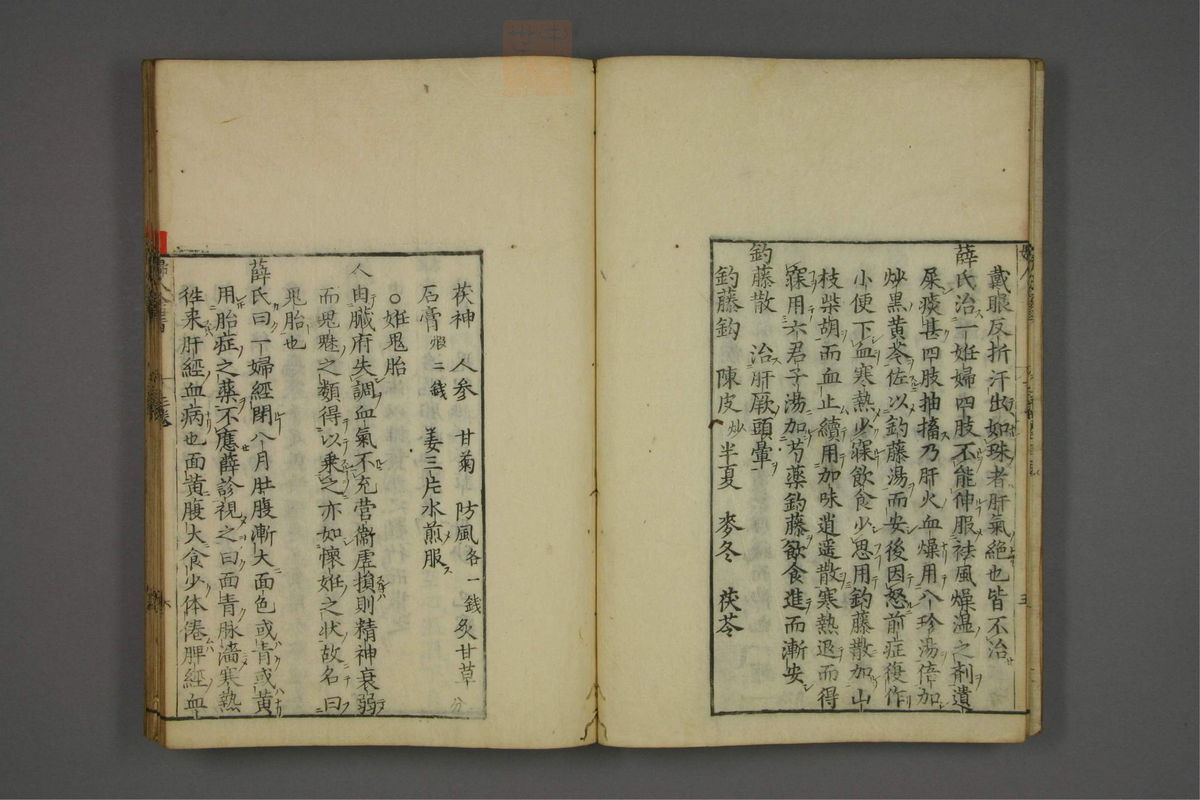 戴眼反折汗出如珠者肝氣絶也皆不治
薛氏治一妊婦四肢不能伸服祛風燥湿之剤遺
屎痰甚四肢抽搐乃肝火血燥用八珍湯倍加
炒黒黄芩佐以鈎藤湯而安後因怒前症復作
小便下血寒熱少寐飲食少思用鈎藤散加山
枝柴胡而血止續用加味逍遥散寒熱退而得
寐用六君子湯加芍薬鈎藤飲食進而漸安
鈎藤散 治肝厥頭暈
鈎藤鈎 陳皮炒 半夏 麥冬 茯苓
茯神 人参 甘菊 防風各一錢 炙甘草分
石膏煅二錢 姜三片水煎服
○妊鬼胎
人由臓府失調血氣不充営衛虚損則精神衰弱
而鬼魅之類得以乗之亦如懐妊之状故名曰
鬼胎也
薛氏曰一婦経閉八月肚腹漸大面色或青或黄
用胎症之薬不應薛診視之曰面青脉濇寒熱
徃来肝經血病也面黄腹大食少体倦脾經血